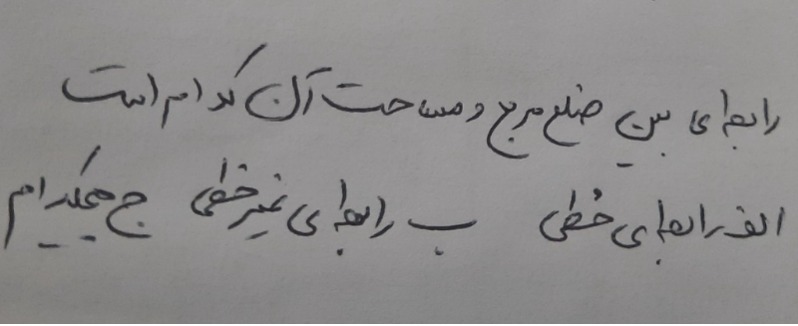 رابطه ای بین ضلع مربع و مساحت آن کدام است
الف رابطه ای خطی ب رابطه ای غیر خطی ج هیچکدام